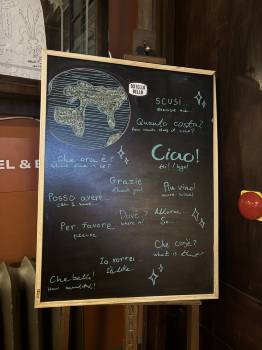 OSTELLO BELLO
SCUSÍ
excuse me...
Quanto costa?
how much does it cost?
Che ora è?
what time is it?
Ciao!
hi! / bye!
EL & B
Grazie
thank you!
Più vino!
more wine!
Posso avere...
can I have...
Dov'è?
where is?
Allora
So...
Per favore
please
Che cos'è?
what is this?
Io vorrei...
I'd like
Che bello!
How beautiful!